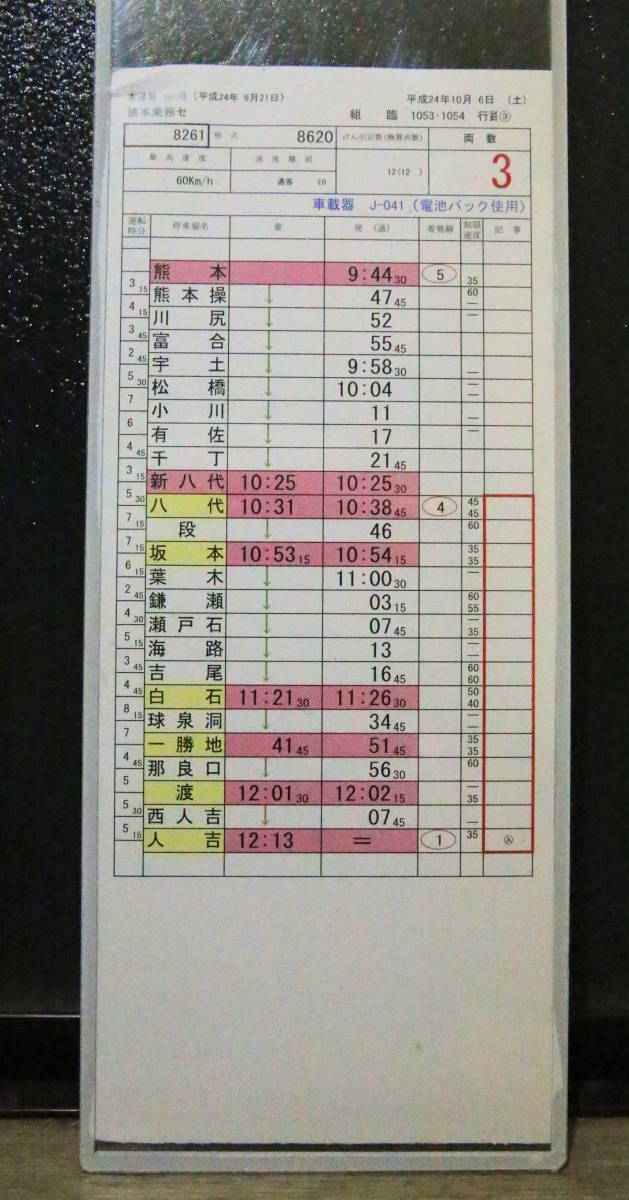 (平成24年 9月21日) 平成24年10月 6日 (土)
熊本乗務セ 組 臨 1053・1054 行路③
8261 形式 8620 けん引定数(換算両数) 両数
最高速度 速度種別 12(12 ) 3
60Km/h 通客
車載器 J-041 (電池パック使用)
運転時分 停車場名 着 発 (通) 着発線 制限速度 記事
熊本 9:44 30 ⑤ 35
3 15 熊本操 ↓ 47 45 60 ―
4 15 川尻 ↓ 52 ―
3 45 富合 ↓ 55 45
2 45 宇土 ↓ 9:58 30 ―
5 30 松橋 ↓ 10:04 ― ―
7 小川 ↓ 11 ―
6 有佐 ↓ 17 ―
4 45 千丁 ↓ 21 45
3 15 新八代 10:25 10:25 30
5 30 八代 10:31 10:38 45 ④ 45 45
7 15 段 ↓ 46 60
7 15 坂本 10:53 15 10:54 15 35 35
6 15 葉木 ↓ 11:00 30 ―
2 45 鎌瀬 ↓ 03 15 60 55
4 30 瀬戸石 ↓ 07 45 ― 35
5 15 海路 ↓ 13 ― ―
3 45 吉尾 ↓ 16 45 60 60
4 45 白石 11:21 30 11:26 30 50 40
8 15 球泉洞 ↓ 34 45 ― ―
7 一勝地 41 45 51 45 35 35
4 45 那良口 ↓ 56 30 60
5 渡 12:01 30 12:02 15 ― 35
5 30 西人吉 ↓ 07 45 ―
5 15 人吉 12:13 = ① 35 ㊅